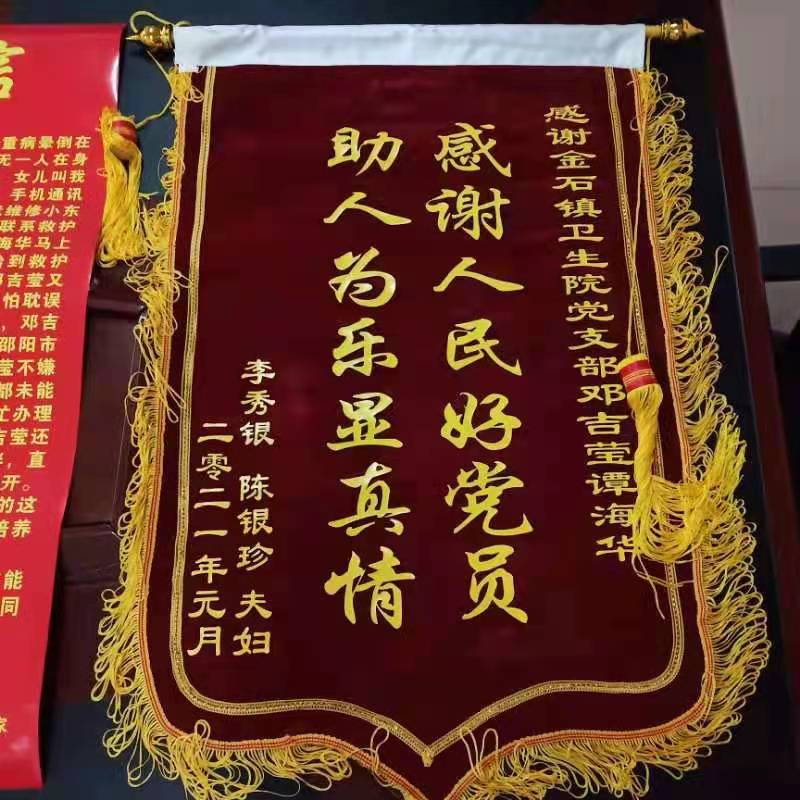 感谢金石镇卫生院党支部邓吉莹谭海华
感谢人民好党员
助人为乐显真情
李秀银 陈银珍 夫妇
二零二一年元月
重病晕倒在
无一人在身
女儿叫我
手机通讯
维修小东
联系救护
海华马上
到救护
吉莹又
怕耽误
，邓吉
邵阳市
莹不嫌
都未能
忙办理
吉莹还
，直
开。
的这
培养
能
同